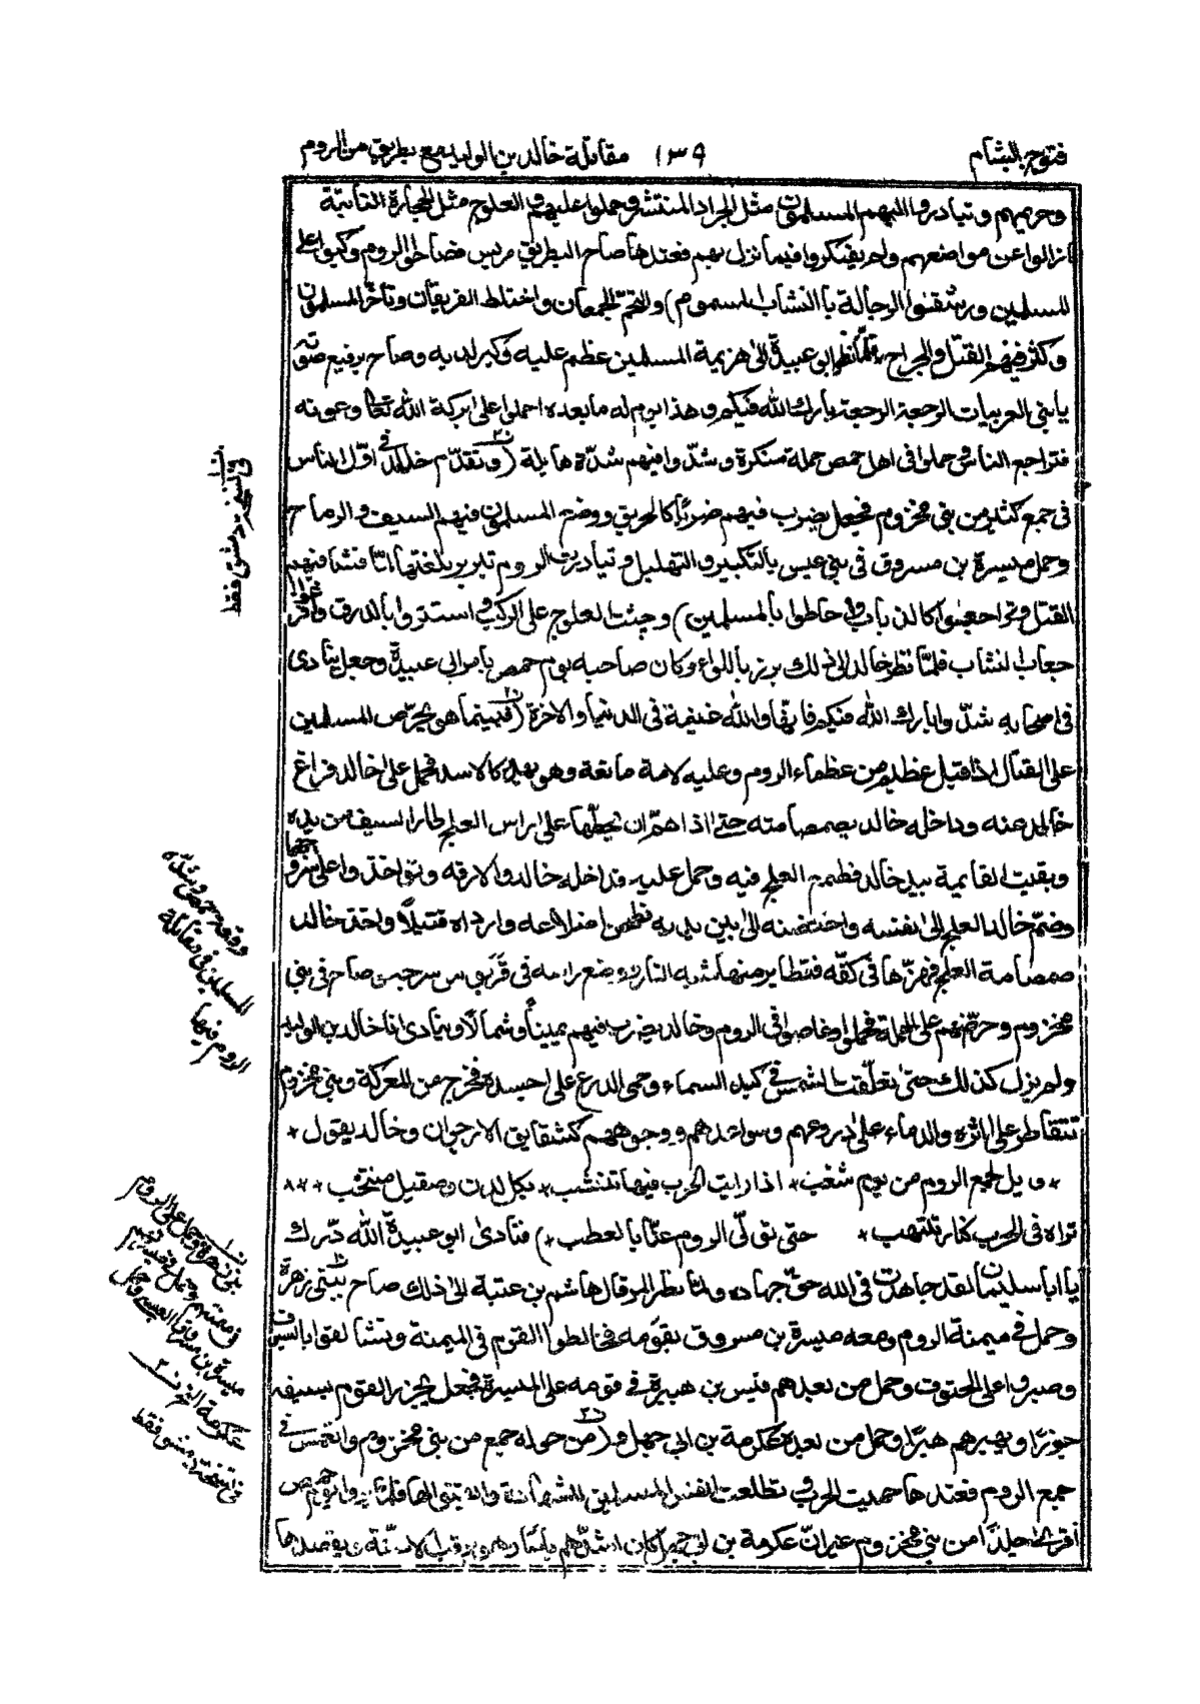 فتوح الشام ١٣٩ مقاتلة خالد بن الوليد مع بطريق من الروم
وحريمهم وتبادروا اليهم المسلمون مثل الجراد المنتشر وحملوا عليهم و العلوج مثل الحجارة الثابتة
ما زالوا عن مواضعهم ولم يفتكروا فيما نزل بهم فعندها صاح البطريق مريس فصاحوا الروم وكبوا على
المسلمين ورشقتهم الرجالة بالنشاب المسموم) والتحم الجمعان واختلط الفريقان وتأخر المسلمون
وكثر فيهم القتل والجراح فلما نظر ابى عبيدة الى هزيمة المسلمين عظم عليه وكبر لديه وصاح برفيع صوته
يا بنى العربيات الرجعة الرجعة بارك الله فيكم وهذا يوم له ما بعده احملوا على بركة الله تعالى وعونه
فتراجع الناس وحملوا فى اهل حمص حملة منكرة وشدوا فيهم شدّة هايلة (وتقدّم خالد فى اوّل الناس
فى جمع كثير من بنى مخزوم فجعل يضرب فيهم ضربًا كالحريق ووضع المسلمون فيهم السيف والرماح
وحمل ميسرة بن مسروق فى بنى عبس بالتكبير والتهليل وتبادرت الروم تبربر بلغتها لمّا فشا فيهم
القتل وتراجعوا كالذباب واحاطوا بالمسلمين) وجثت العلوج على الركب واستتروا بالدرق وافرغوا
جعاب النشاب فلمّا نظر خالد الى ذلك برز باللواء وكان صاحبه يوم حمص بامر ابى عبيدة وجعل ينادى
فى اصحابه شدّوا بارك الله فيكم فانها والله غنيمة فى الدنيا والاخرة (فبينما هو يحرّض المسلمين
على القتال اذ اقبل عظيم من عظماء الروم وعليه لامة مانعة وهو يهدر كالاسد فحمل على خالد فراغ
خالد عنه وداخله خالد بصمصامته حتى اذا همّ ان يحطّها على راس العلج طار السيف من يده
وبقيت القايمة بيد خالد فطمع العلج فيه وحمل عليه فداخله خالد والازقه وتواخذوا على سروجهما
وضمّ خالد العلج الى نفسه واحتضنه الى بين يديه فطحن اضلاعه وارداه قتيلًا واخذ خالد
صمصامة العلج فهزّها فى كفّه فتطاير منها شبه النار ووضع راسه فى قربوس سرجه وصاح فى بنى
مخزوم وحرّضهم على الحملة فحملوا وغاصوا فى الروم وخالد يضرب فيهم يمينًا وشمالًا وينادى انا خالد بن الوليد
ولم يزل كذلك حتى تعلّقت الشمس فى كبد السماء وحمى الدرع على جسده فخرج من المعركة وبنى مخزوم
تتقاطر على اثره والدماء على دروعهم وسواعدهم ووجوههم كشقايق الارجوان وخالد يقول *
* ويل لجمع الروم من يوم شغب * اذا رايت الحرب فيها تنشب * بكل لدن وصقيل منتخب ***
تراه فى الحرب كنار تلتهب * حتى تولّى الروم عنّا بالعطب *) فنادى ابو عبيدة الله درّك
يا ابا سليمان لقد جاهدت فى الله حقّ جهاده ولمّا نظر المرقال هاشم بن عتبة الى ذلك صاح ببنى زهرة
وحمل فى ميمنة الروم ومعه ميسرة بن مسروق بقومه فخالطوا القوم فى الميمنة وتشالقوا بالسيوف
وصبروا على الحتوف وحمل من بعدهم قيس بن هبيرة فى قومه على الميسرة فجعل يجزر القوم بسيفه
جزرًا ويهبرهم هبرًا وحمل من بعده عكرمة بن ابى جهل و(من حوله جمع من بنى مخزوم وانغمس فى
جمع الروم فعندها حميت الحرب وتطلعت انفس المسلمين للشهادة
من بنى مخزوم غير انّ عكرمة بن ابى جهل كان اشدّهم
فى نسخة دمشق فقط
وقعة حمص وشدّة
المسلمين فى مقاتلة
الروم فيها
بنى زهرة وحمل على الروم
ميسرة بن مسروق العبسى وحمل
عكرمة
فى نسخة دمشق فقط